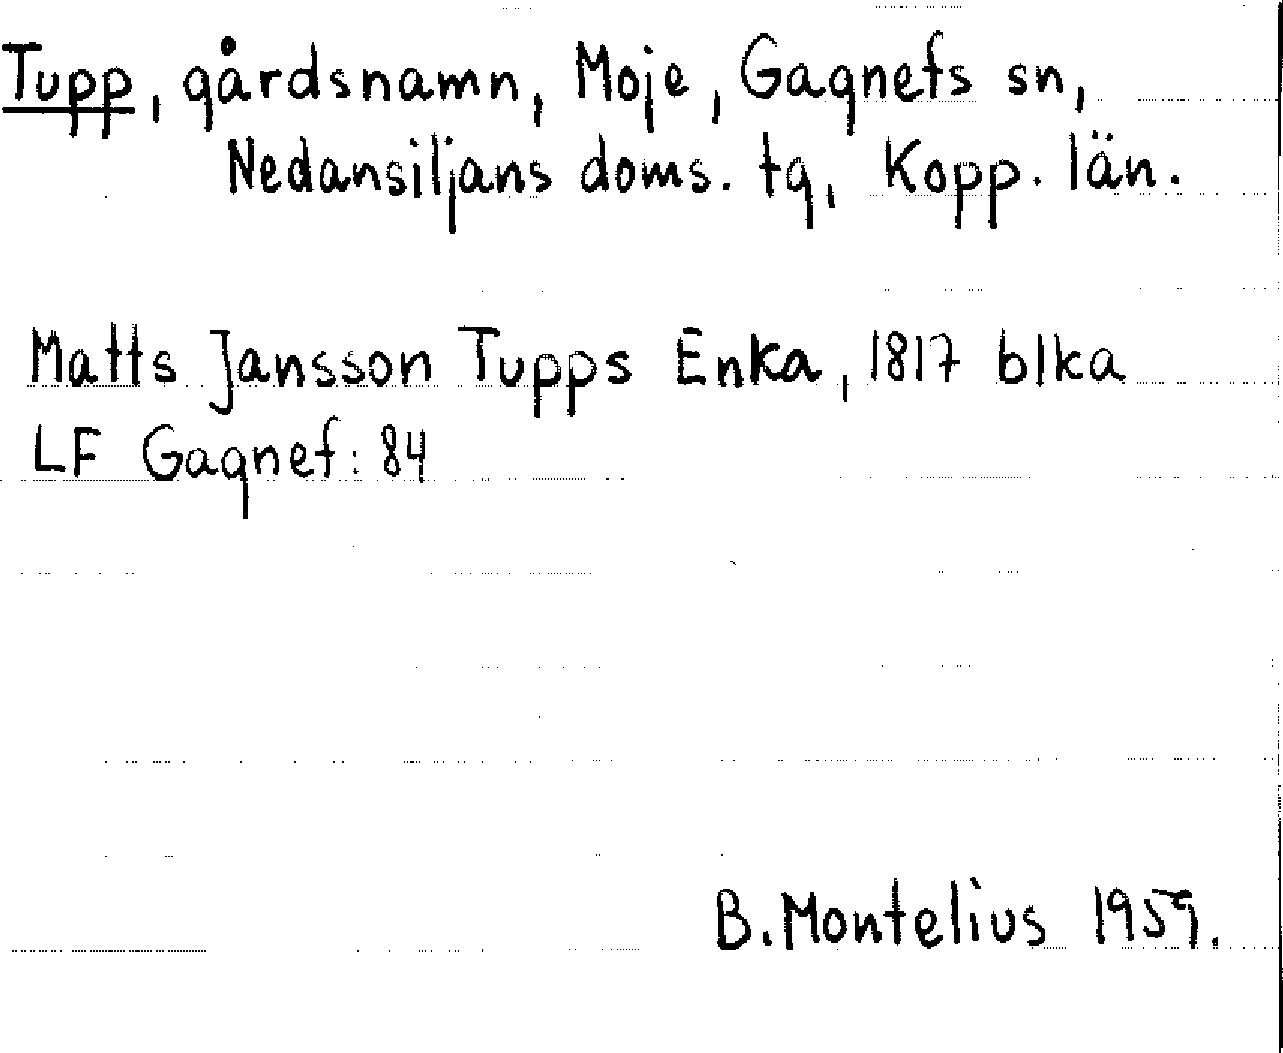 Tupp, gårdsnamn, Moje, Gagnefs sn,
Nedansiljans doms. tg, Kopp. län.
Matts Jansson Tupps Enka, 1817 blka
LF Gagnef: 84
B. Montelius 1959.